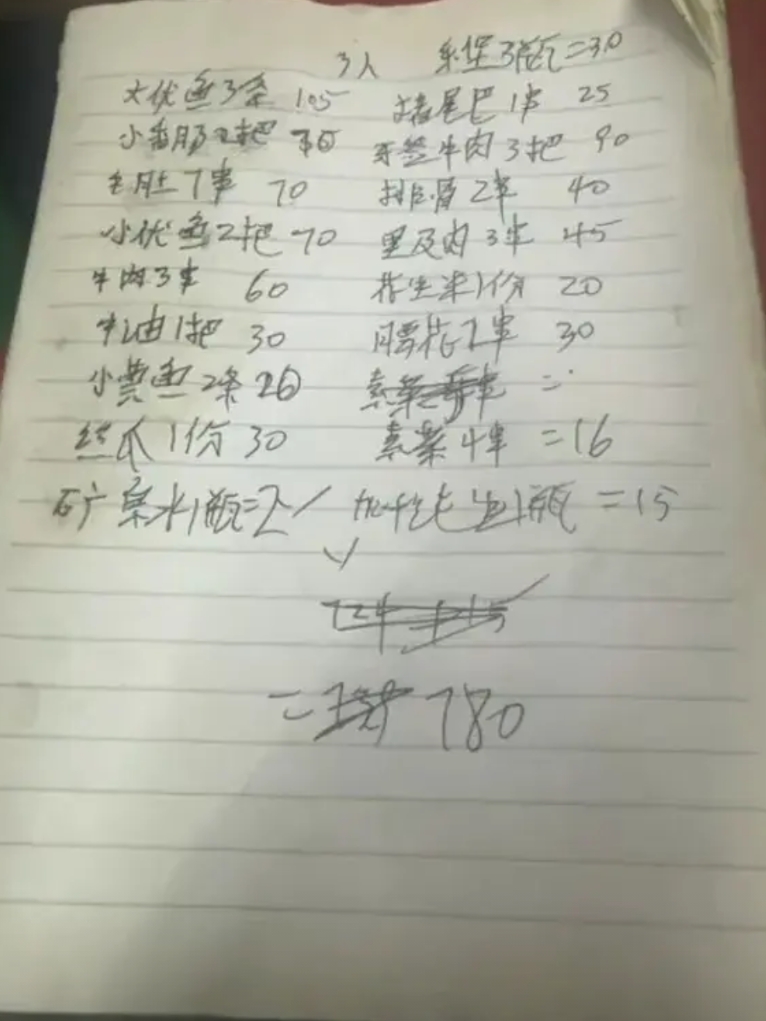 3人 乐堡3瓶=30
大优鱼3条 105 猪尾巴1串 25
小香肠2把 牙签牛肉3把 90
毛肚7串 70 排骨2串 40
小优鱼2把 70 里及肉3串 45
牛肉3串 60 花生米1份 20
牛油1把 30 腰花2串 30
小黄鱼2条 20 素菜 =
丝瓜1份 30 素菜4串 =16
矿泉水1瓶=2 加多宝1瓶 =15
= 780